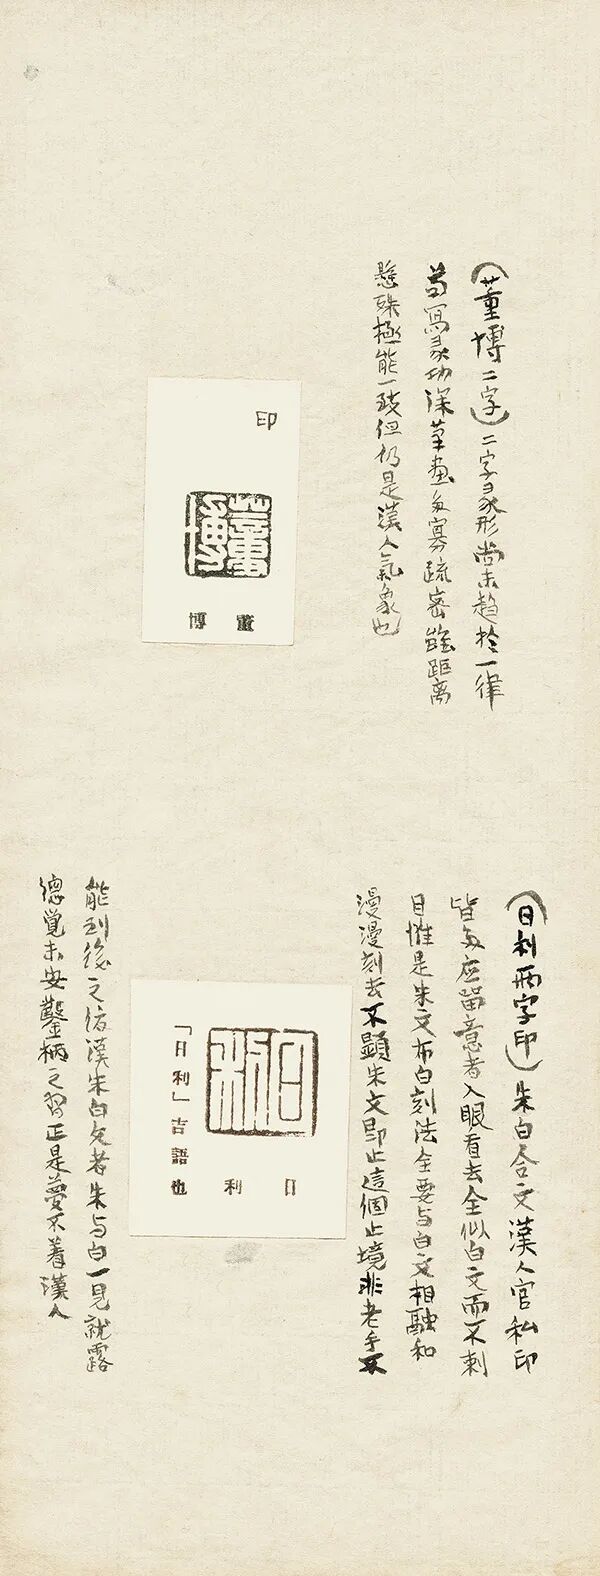 （董博二字）二字象形尚未趋於一律
苟寫象功深筆畫多寡疏密雖距离
懸殊極能一致但仍是漢人氣象也
印
董博
董
博
（日利两字印）朱白合文漢人官私印
皆多應留意者入眼看去全似白文而不刺
目惟是朱文布白刻法全要与白文相融和
漫漫刻去不顯朱文即止這個止境非老手不
日利
日
利
「日利」吉語也
能到後之仿漢朱白文者朱与白一見就露
德覚未安鑿柄之習正是夢不着漢人